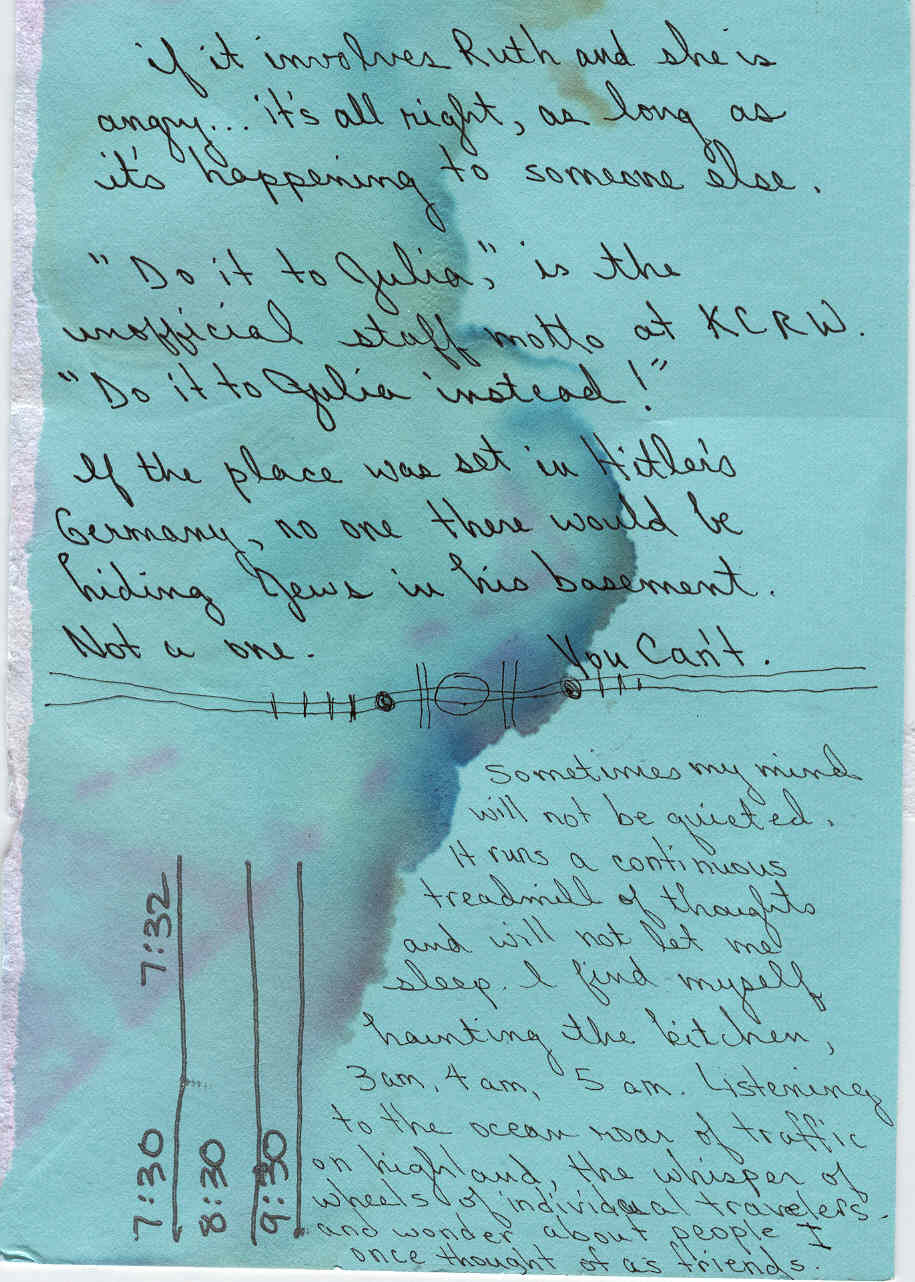 if it involves Ruth and she is
angry... it's all right, as long as
it's happening to someone else.
"Do it to Julia," is the
unofficial staff motto at KCRW.
"Do it to Julia instead!"
If the place was set in Hitler's
Germany, no one there would be
hiding Jews in his basement.
Not a one. You Can't.
Sometimes my mind
will not be quieted.
It runs a continuous
treadmill of thoughts
and will not let me
sleep. I find myself
haunting the kitchen,
3am, 4am, 5 am. Listening
to the ocean roar of traffic
on highland, the whisper of
wheels of individual travelers
and wonder about people I
once thought of as friends.
7:30 7:32
8:30
9:30